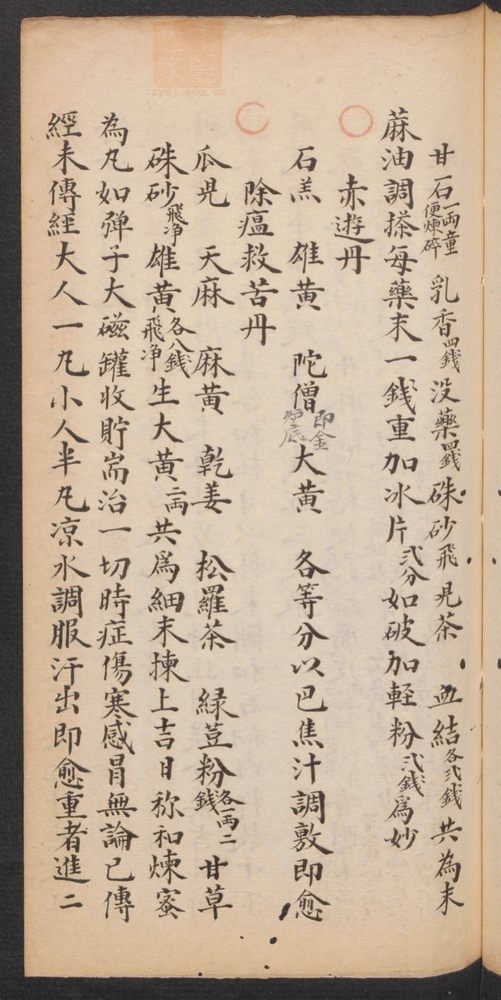 甘石一両童便煉碎 乳香四錢 没藥四錢 硃砂飛 児茶 血結各弍錢 共為末
蔴油調搽每藥末一錢重加冰片弍分如破加軽粉弍錢爲妙
赤遊丹
石羔 雄黄 陀僧即金炉底 大黄 各等分以巴焦汁調敷即愈
除瘟救苦丹
瓜児 天麻 麻黄 乾姜 松羅茶 緑荳粉各一両二錢 甘草
硃砂飛净 雄黄飛净各八錢 生大黄二両 共爲細末揀上吉日称和煉蜜
為丸如弹子大磁罐收貯耑治一切時症傷寒感冒無論已傳
經未傳經大人一丸小人半丸凉水調服汗出即愈重者進二